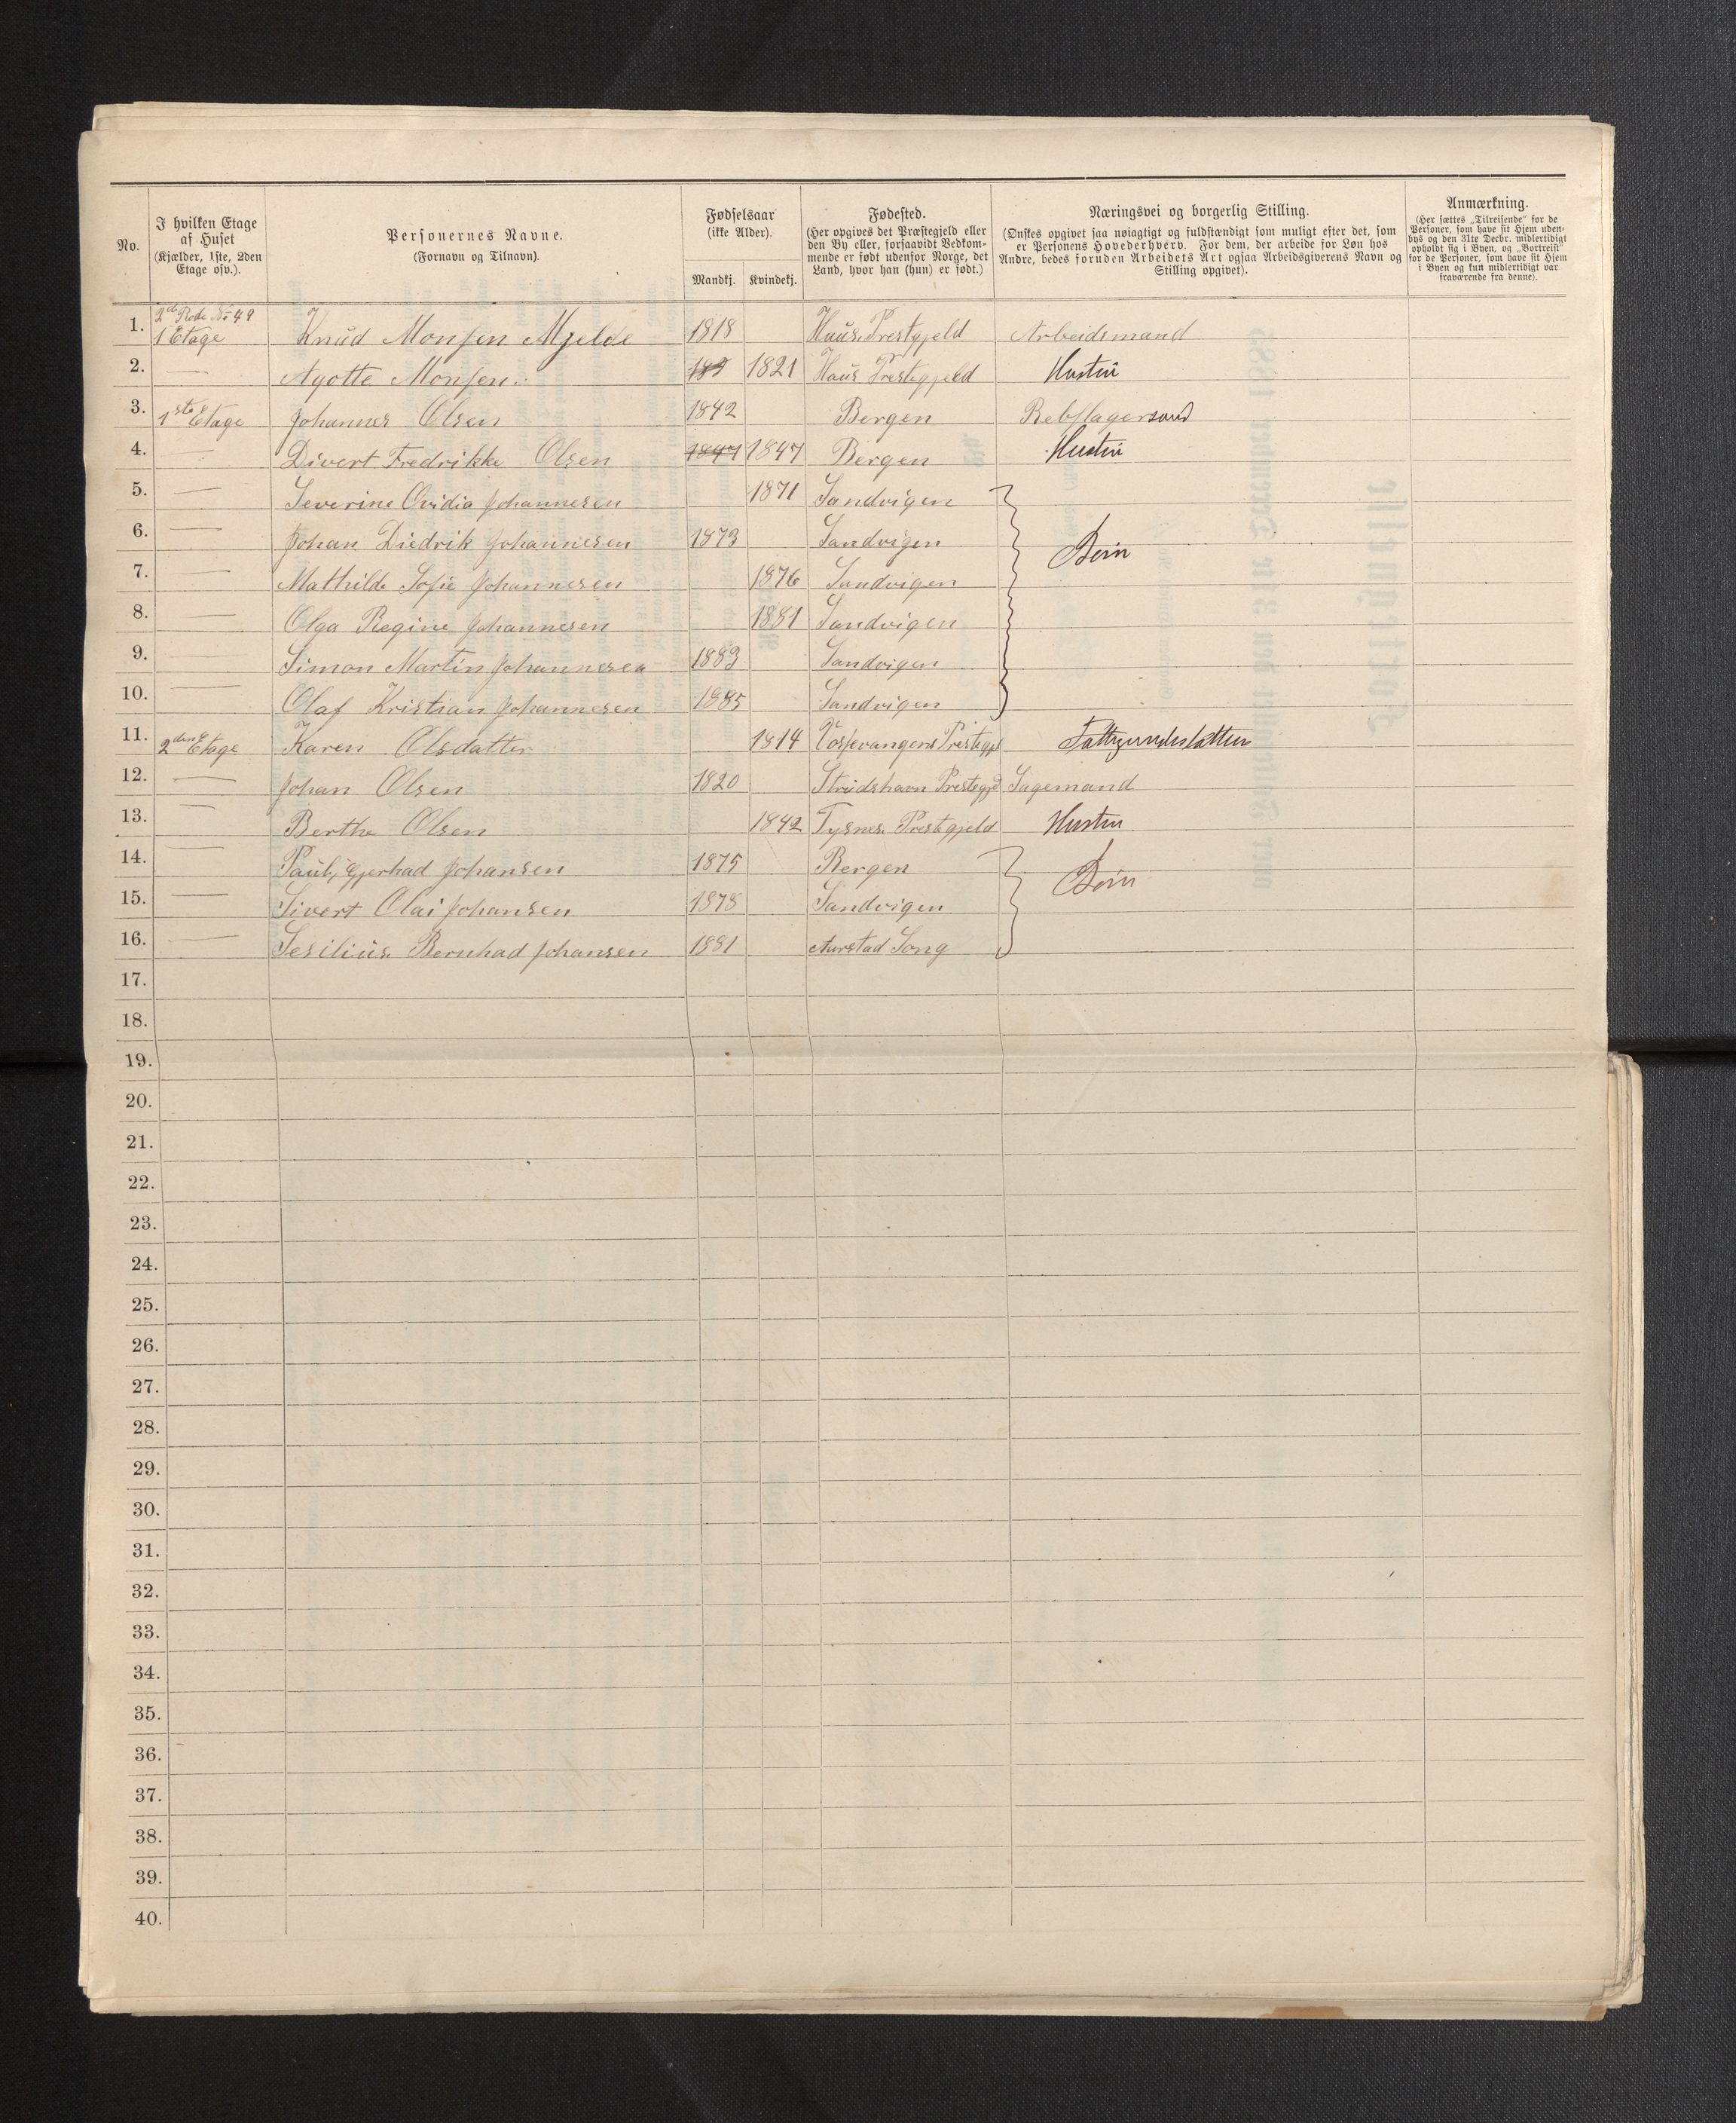 No.
I hvilken Etage
af Huset
(Kjælder, 1ste, 2den
Etage osv.).
Personernes Navne.
(Fornavn og Tilnavn).
Fødselsaar
(ikke Alder).
Mandkj. Kvindekj.
Fødested.
(Her opgives det Præstegjeld eller
den By eller, forsaavidt Vedkom-
mende er født udenfor Norge, det
Land, hvor han (hun) er født.)
Næringsvei og borgerlig Stilling.
(Ønskes opgivet saa nøiagtigt og fuldstændigt som muligt efter det, som
er Personens Hovederhverv. For dem, der arbeide for Løn hos
Andre, bedes foruden Arbeidets Art ogsaa Arbeidsgiverens Navn og
Stilling opgivet).
Anmærkning.
(Her sættes „Tilreisende" for de
Personer, som have sit Hjem uden-
bys og den 31te Decbr. midlertidigt
opholdt sig i Byen, og „Bortreist"
for de Personer, som have sit Hjem
i Byen og kun midlertidigt var
fraværende fra denne).
2de Rode No 49
1. 1 Etage Knud Monsen Mjelde 1818 Haus Prestgjeld Arbeidsmand
2. — Agotte Monsen 1821 Haus Prestegjeld Hustru
3. 1ste Etage Johannes Olsen 1842 Bergen Rebslagersvend
4. — Divert Fredrikke Olsen 1847 1847 Bergen Hustru
5. — Severine Ovidia Johannesen 1871 Sandvigen
6. — Johan Diedrik Johannesen 1873 Sandvigen Børn
7. — Mathilde Sofie Johannesen 1876 Sandvigen
8. — Olga Regine Johannesen 1881 Sandvigen
9. — Simon Martin Johannesen 1883 Sandvigen
10. — Olaf Kristian Johannesen 1885 Sandvigen
11. 2den Etage Karen Olsdatter 1814 Vossevangens Prestegj Fattigunderstøttet
12. — Johan Olsen 1820 Strudshavn Prestegjd Sagemand
13. — Berthe Olsen 1842 Tysnes Prestegjeld Hustru
14. — Paul Gjerhad Johansen 1875 Bergen Børn
15. — Sivert Olai Johansen 1878 Sandvigen
16. — Sesilius Bernhad Johansen 1881 Aarstad Song
17.
18.
19.
20.
21.
22.
23.
24.
25.
26.
27.
28.
29.
30.
31.
32.
33.
34.
35.
36.
37.
38.
39.
40.